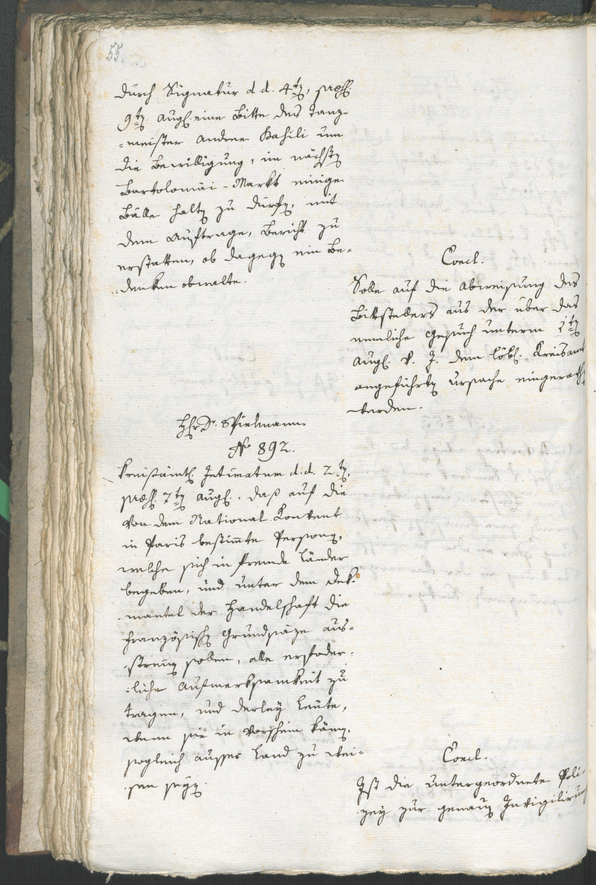 55.
durch Signatur d.d. 4t, prs.
9t Augl. eine Bitte des Tanz-
-meister Andree Kahili um
die Bewilligung, im nächst
Bartolomäi-Markt einige
Bälle halt zu dürf, mit
dem Auftrage, Bericht zu
erstatten, ob dageg ein Be-
-denken obwalte.
Concl.
Solle auf die Abweisung des
Bittstellers aus der über das
nemliche Gesuch unterm 5t
Augl. v. J. dem löbl. Kreisamt
angeführt Ursache eingerath
werden.
H Dr. Spielmann
No 892.
Kreisämtl. Intimatum d.d. 2t,
prs. 7t Augl. daß auf die
von dem National-Konvent
in Paris bestimte Person,
welche sich in fremde Länder
begeben, und unter dem Dek-
-mantel der Handelschaft die
französisch Grundsäze aus-
-streuen sollen, alle erfoder-
-liche Aufmerksamkeit zu
tragen, und derley Leute,
wenn sie in Vorschein käm,
sogleich ausser Land zu wei-
-sen sey.
Concl.
Ist die untergeordnete Poli-
zey zur genau Invigilirung